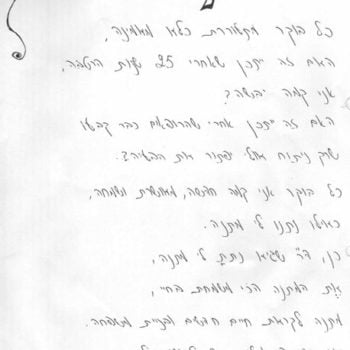 כל בוקר מתעוררת כלא מאמינה,
האם זה יתכן שאחרי 25 שנות הרטבה,
אני קמה יבשה?
האם זה יתכן אחרי שהרופאים כבר קבעו
שרק ניתוח אולי יפתור את הבעיה?.
כל בוקר אני קמה חפשה, מאושרת ושמחה,
כאילו נתנו לי מתנה.
כן, דר' שגיא נתת לי מתנה,
את המתנה הכי משמחת בחיי,
מתנה לקראת חיים חדשים ובניית משפחה.